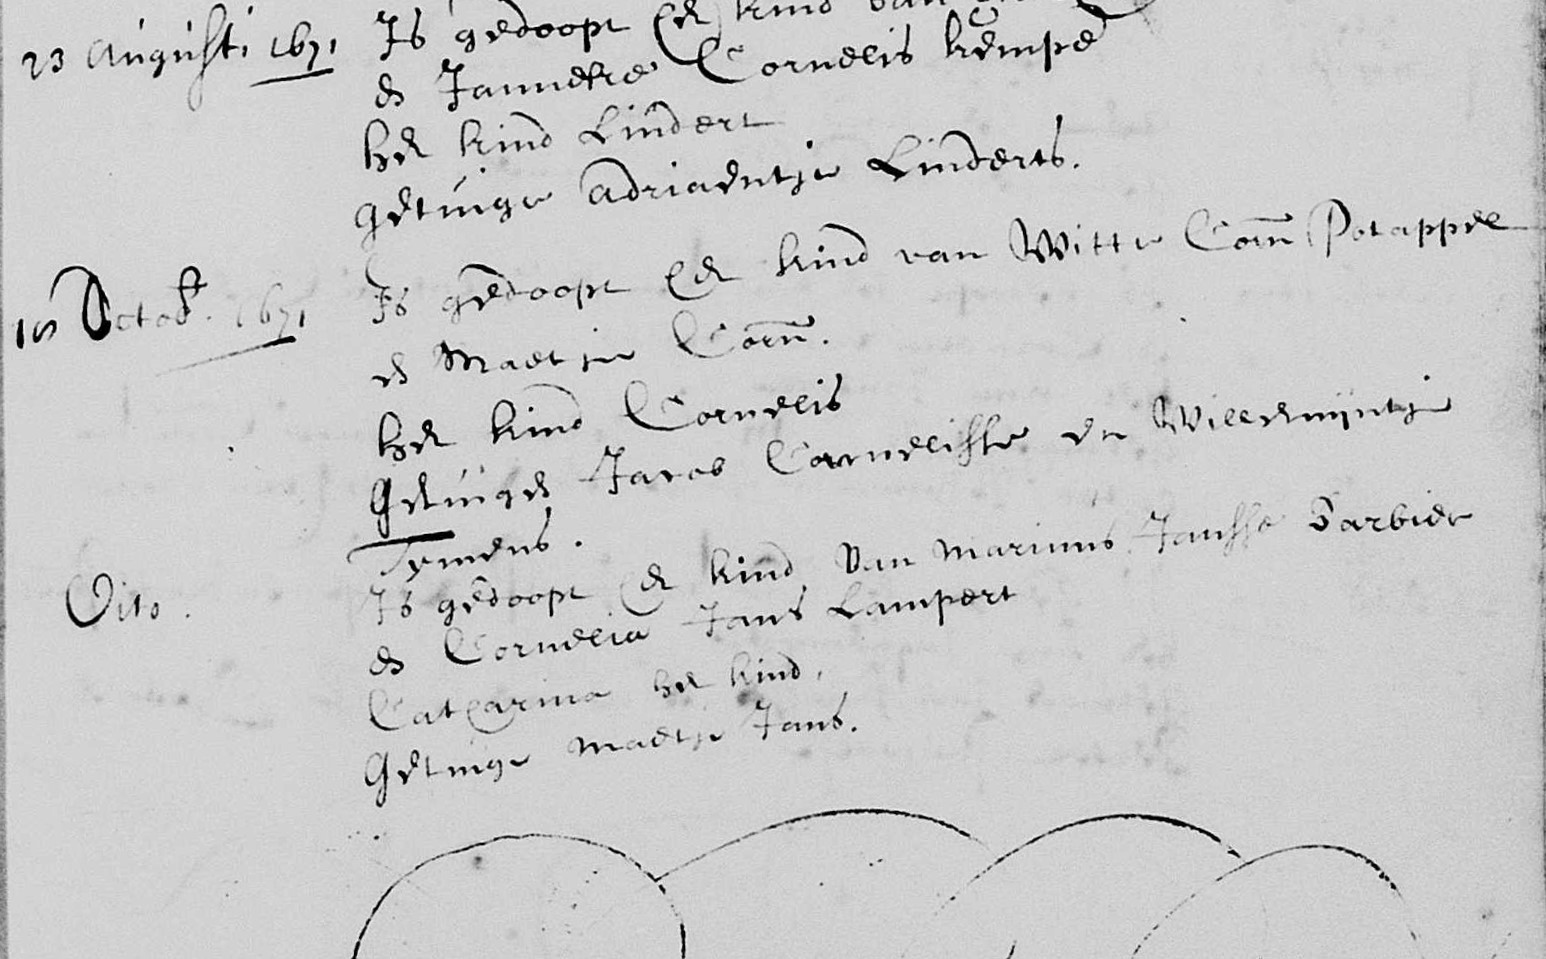 23 Augusti 1671 Is gedoopt een kind van
en Janneke Cornelis kempe
het kind Lindert
getuige Adriaentje Linderts.
18 Octob. 1671 Is gedoopt een kind van Witte Corn Potappel
en Maetje Corn.
het kind Cornelis
Getuigen Jacob Cornelisse en Willemijntje
Tymens.
Dito. Is gedoopt een kind van Marinus Jansse Barbier
en Cornelia Jans Lampert
Catharina het kind,
Getuige Maetje Jans.